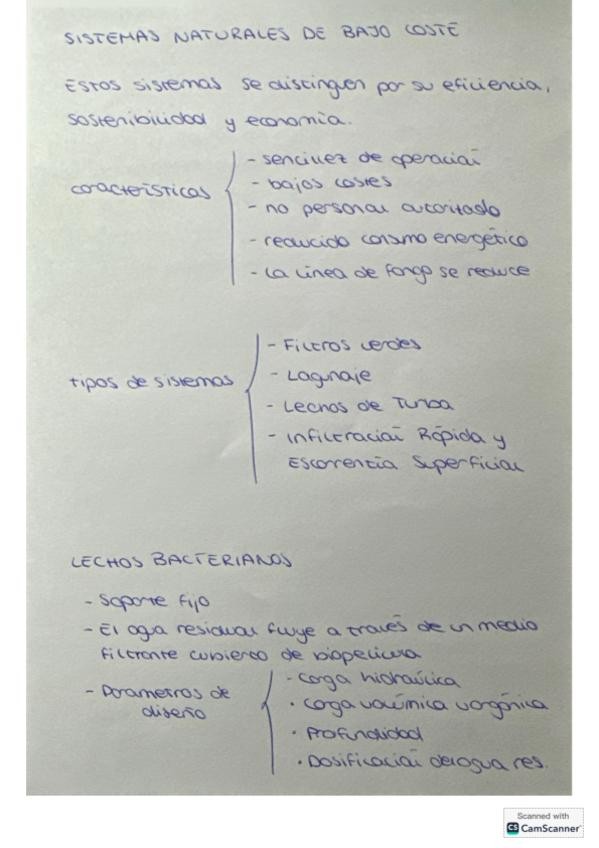 SISTEMAS NATURALES DE BAJO COSTE
Estos sistemas se distinguen por su eficiencia,
sostenibilidad y economía.
características
- sencillez de operación
- bajos costes
- no personal autoritado
- reducido consumo energético
- La línea de fango se reduce
tipos de sistemas
- Filtros verdes
- Lagunaje
- Lechos de Turba
- Infiltración Rápida y
Escorrentía Superficial
LECHOS BACTERIANOS
- Soporte fijo
- El agua residual fluye a través de un medio
filtrante cubierto de biopelícula
- Parametros de
diseño
- Carga hidraúlica
· Carga volúmica u orgánica
· Profundidad
· Dosificación del agua res.
Scanned with
CS CamScanner